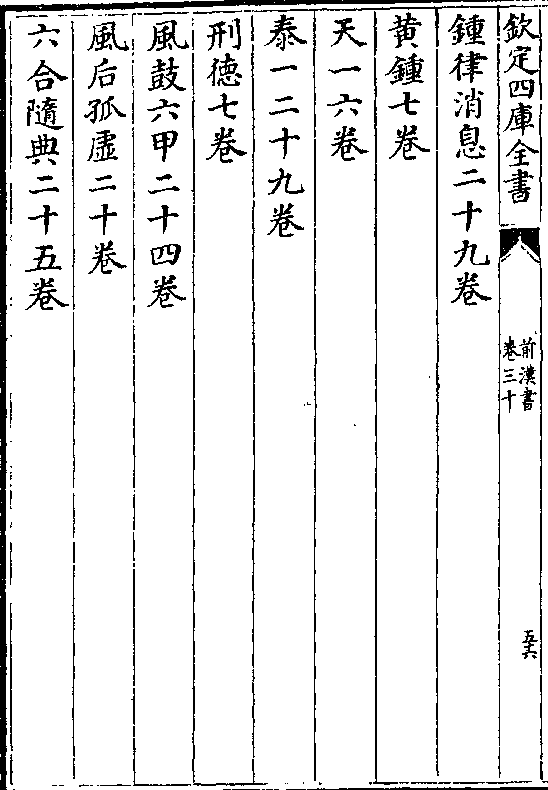 欽定四庫全書
前漢書
卷三十
五六
鍾律消息二十九卷
黄鍾七卷
天一六卷
泰一二十九卷
刑徳七卷
風鼓六甲二十四卷
風后孤虛二十卷
六合隨典二十五卷